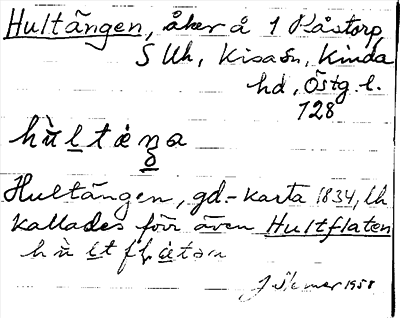 Hultängen, åker å 1 Råstorp
S Uh, Kisa sn, Kinda
hd, Östg. l.
128
hùltèŋa
Hultängen, gd-karta 1834, Uh
kallades förr även Hultflaten
hùltflàtən
1958